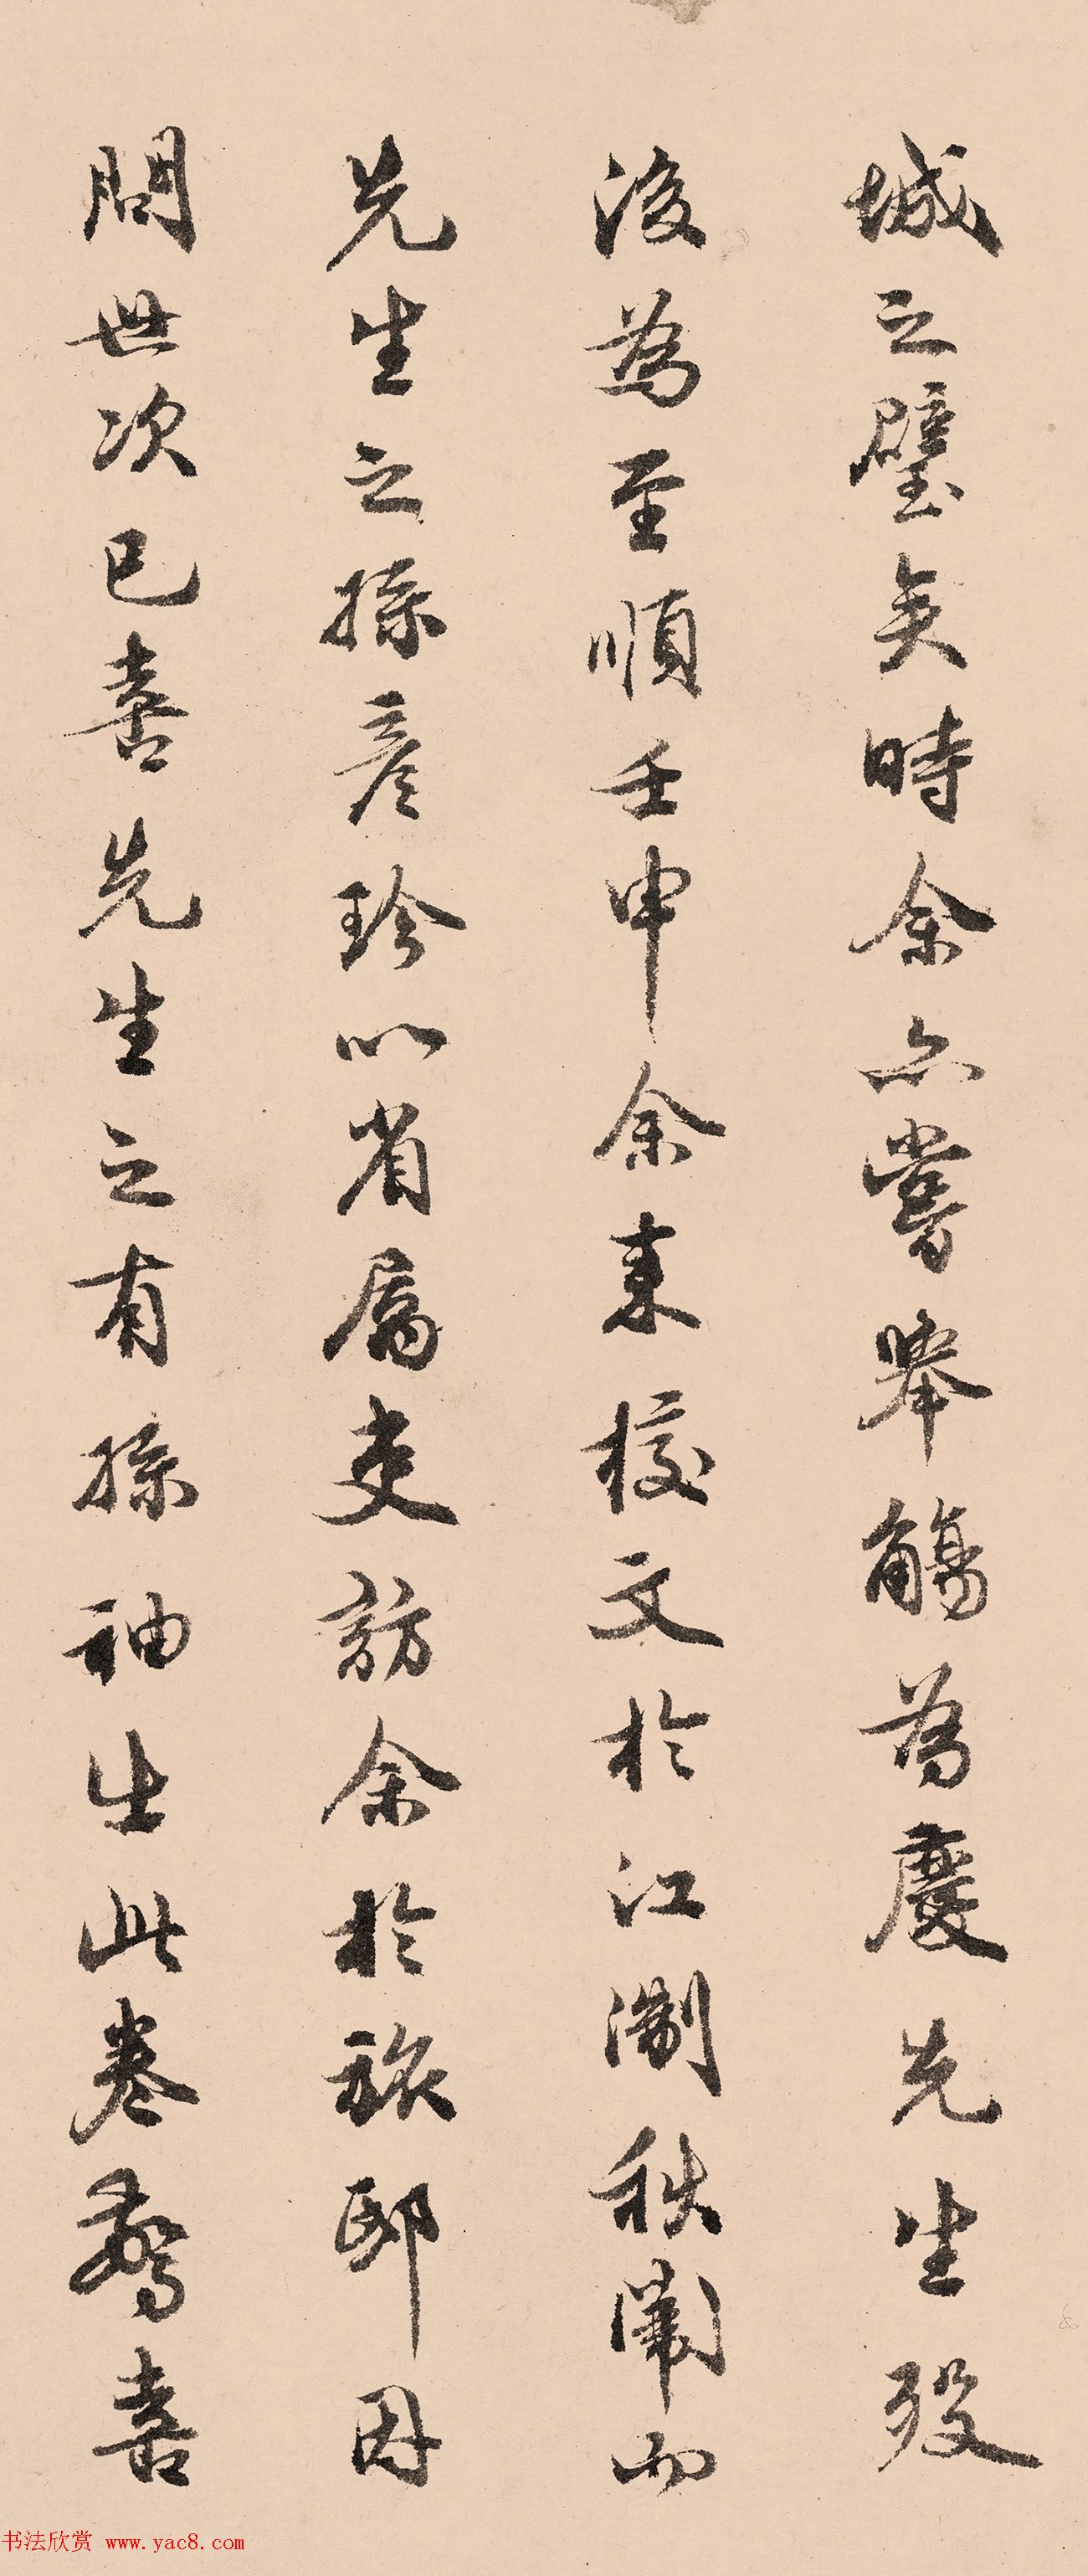 城之璧矣時余亦嘗舉觴為慶先生歿
後為至順壬申余來校文於江浙秋闈而
先生之孫彥珍以省屬吏訪余於旅邸因
問世次已喜先生之有孫袖出此卷驚喜
书法欣赏 www.yac8.com